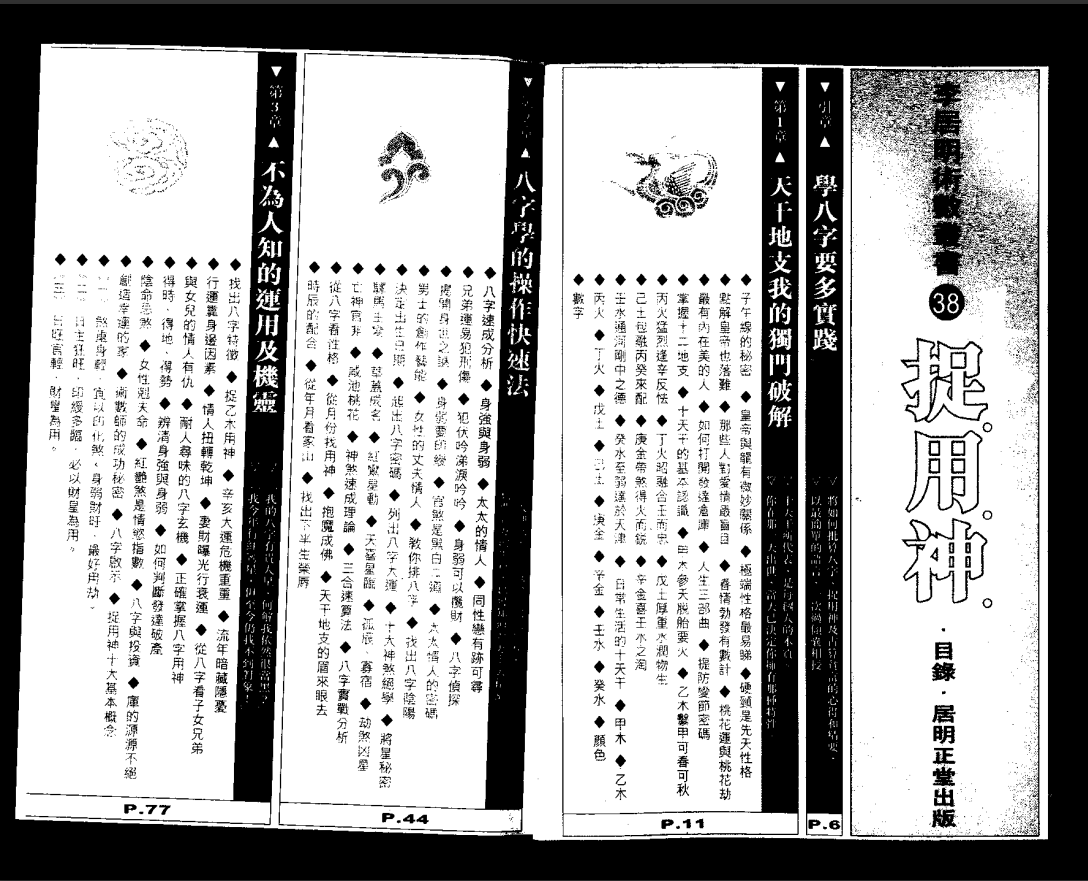 李居明術數叢書 38
捉用神
·目錄·居明正堂出版
▼引章▲ 學八字要多實踐
P.6
▼第1章▲ 天干地支我的獨門破解
◆子午線的秘密 ◆皇帝與寵有微妙關係 ◆極端性格最易睇 ◆硬頸是先天性格
◆點解皇帝也落難 ◆那些人對愛情最盲目 ◆春情勃發有數計 ◆桃花運與桃花劫
◆最有內在美的人 ◆如何打開發達倉庫 ◆人生三部曲 ◆提防變節密碼
◆掌握十二地支 ◆十天干的基本認識 ◆甲木參天脫胎要火 ◆乙木繫甲可春可秋
◆丙火猛烈逢辛反怯 ◆丁火昭融合壬而忠 ◆戊土厚重水潤物生
◆己土包雞丙癸來配 ◆庚金帶煞得火而銳 ◆辛金喜壬水之淘
◆壬水通河剛中之德 ◆癸水至弱達於天津 ◆日常生活的十天干 ◆甲木 ◆乙木
◆丙火 ◆丁火 ◆戊土 ◆己土 ◆庚金 ◆辛金 ◆壬水 ◆癸水 ◆顏色
◆數字
P.11
八字學的操作快速法
◆八字速成分析 ◆身強與身弱 ◆太太的情人 ◆同性戀有跡可尋
◆兄弟運易犯刑傷 ◆犯伏吟涕淚吟吟 ◆身弱可以攬財 ◆八字偵探
◆身弱愛印綬 ◆官煞是黑白二道 ◆太太情人的密碼
◆男士的創作藝能 ◆女性的丈夫情人 ◆教你排八字 ◆找出八字陰陽
◆決定出生日期 ◆起出八字密碼 ◆列出八字大運 ◆十大神煞絕學 ◆將星秘密
◆孤辰、寡宿 ◆劫煞凶星
◆亡神官非 ◆咸池桃花 ◆神煞速成理論 ◆三合速算法 ◆八字實戰分析
◆從八字看性格 ◆從月份找用神 ◆抱魔成佛 ◆天干地支的眉來眼去
◆時辰的配合 ◆從年月看家山 ◆找出下半生榮辱
P.44
▼第3章▲ 不為人知的運用及機靈
◆找出八字特徵 ◆捉乙木用神 ◆辛亥大運危機重重 ◆流年暗藏隱憂
◆行運靠身邊因素 ◆情人扭轉乾坤 ◆妻財曝光行衰運 ◆從八字看子女兄弟
◆與女兒的情人有仇 ◆耐人尋味的八字玄機 ◆正確掌握八字用神
◆得時、得地、得勢 ◆辨清身強與身弱 ◆如何判斷發達破產
◆陰命忌煞 ◆女性剋夫命 ◆紅艷煞是情慾指數 ◆八字與投資 ◆庫的源源不絕
◆創造幸運的家 ◆術數師的成功秘密 ◆八字啟示 ◆捉用神十大基本概念
◆(一)煞重身輕，宜以印化煞。身弱財旺，最好用劫。
◆(二)日主狂旺，印綬多臨，必以財星為用。
◆(三)財星為用。
P.77